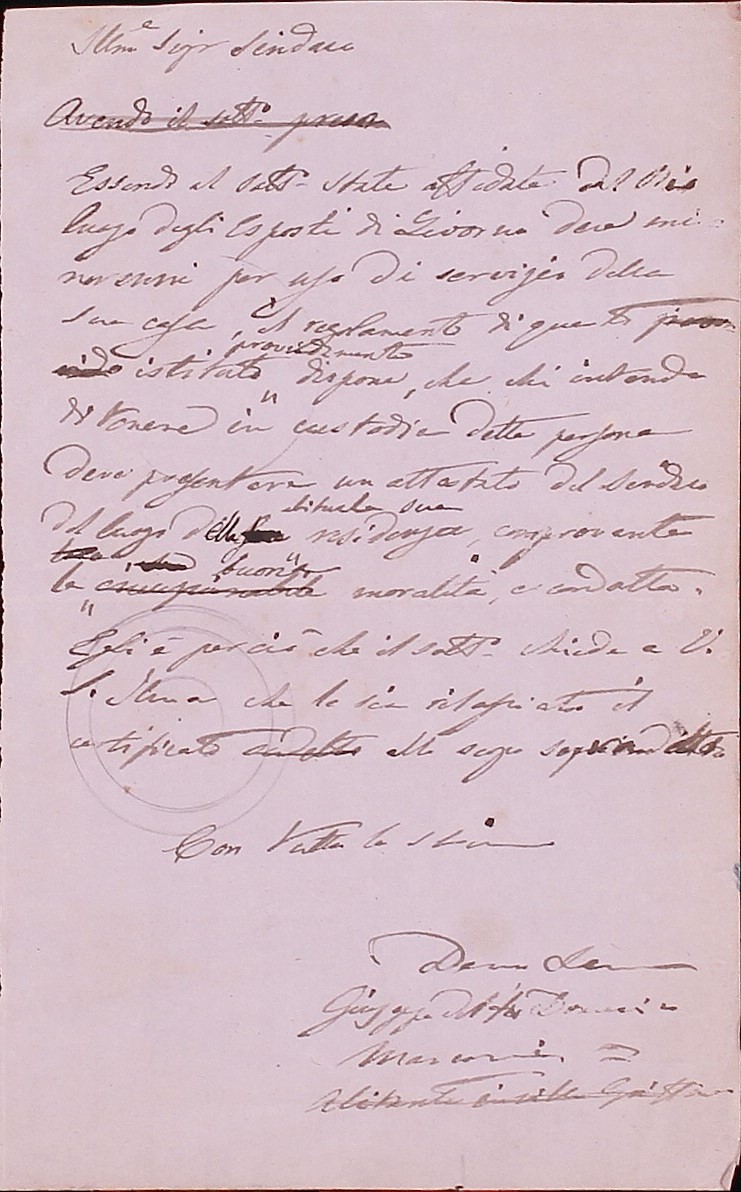 Illme Sigr Sindaco
Avendo il sotto preso
Essendo al sotto state affidate dal Pio
luogo degli Esposti di Livorno due mi-
norenni per uso di servizio della
sua casa, il regolamento di questo
provvedimento
istituto dispone, che chi intende
di tenere in custodia dette persone
deve presentare un attestato del Sindaco
attuale sua
del luogo della residenza, comprovante
buonta
la moralità, e condotta.
Egli è perciò che il sotto chiede a V.
S. Illma che le sia rilasciato il
certificato allo scopo sopraindicato
Con tutta la stima
Giuseppe del fu Domenico
Marconi
abitante in